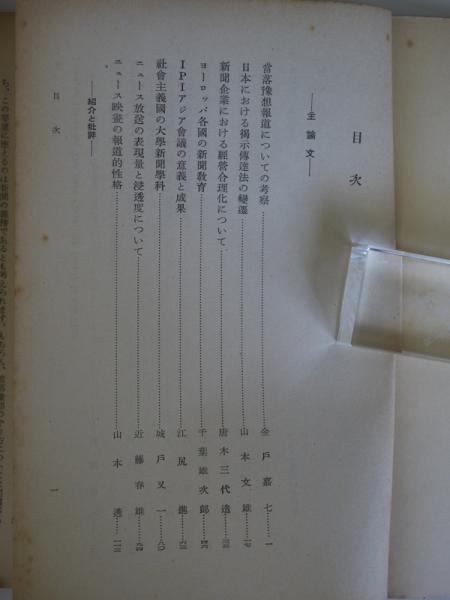 目次
――主論文――
當落豫想報道についての考察……金戸嘉七……一
日本における揭示傳達法の變遷……山本文雄……一七
新聞企業における經營合理化について……唐木三代造……三三
ヨーロッパ各國の新聞教育……千葉雄次郎……四六
IPIアジア會議の意義と成果……江尻進……六三
社會主義國の大學新聞學科……城戸又一……八〇
ニュース放送の表現量と浸透度について……近藤春雄……九四
ニュース映畫の報道的性格……山本透……一一三
――紹介と批評――
目次
一